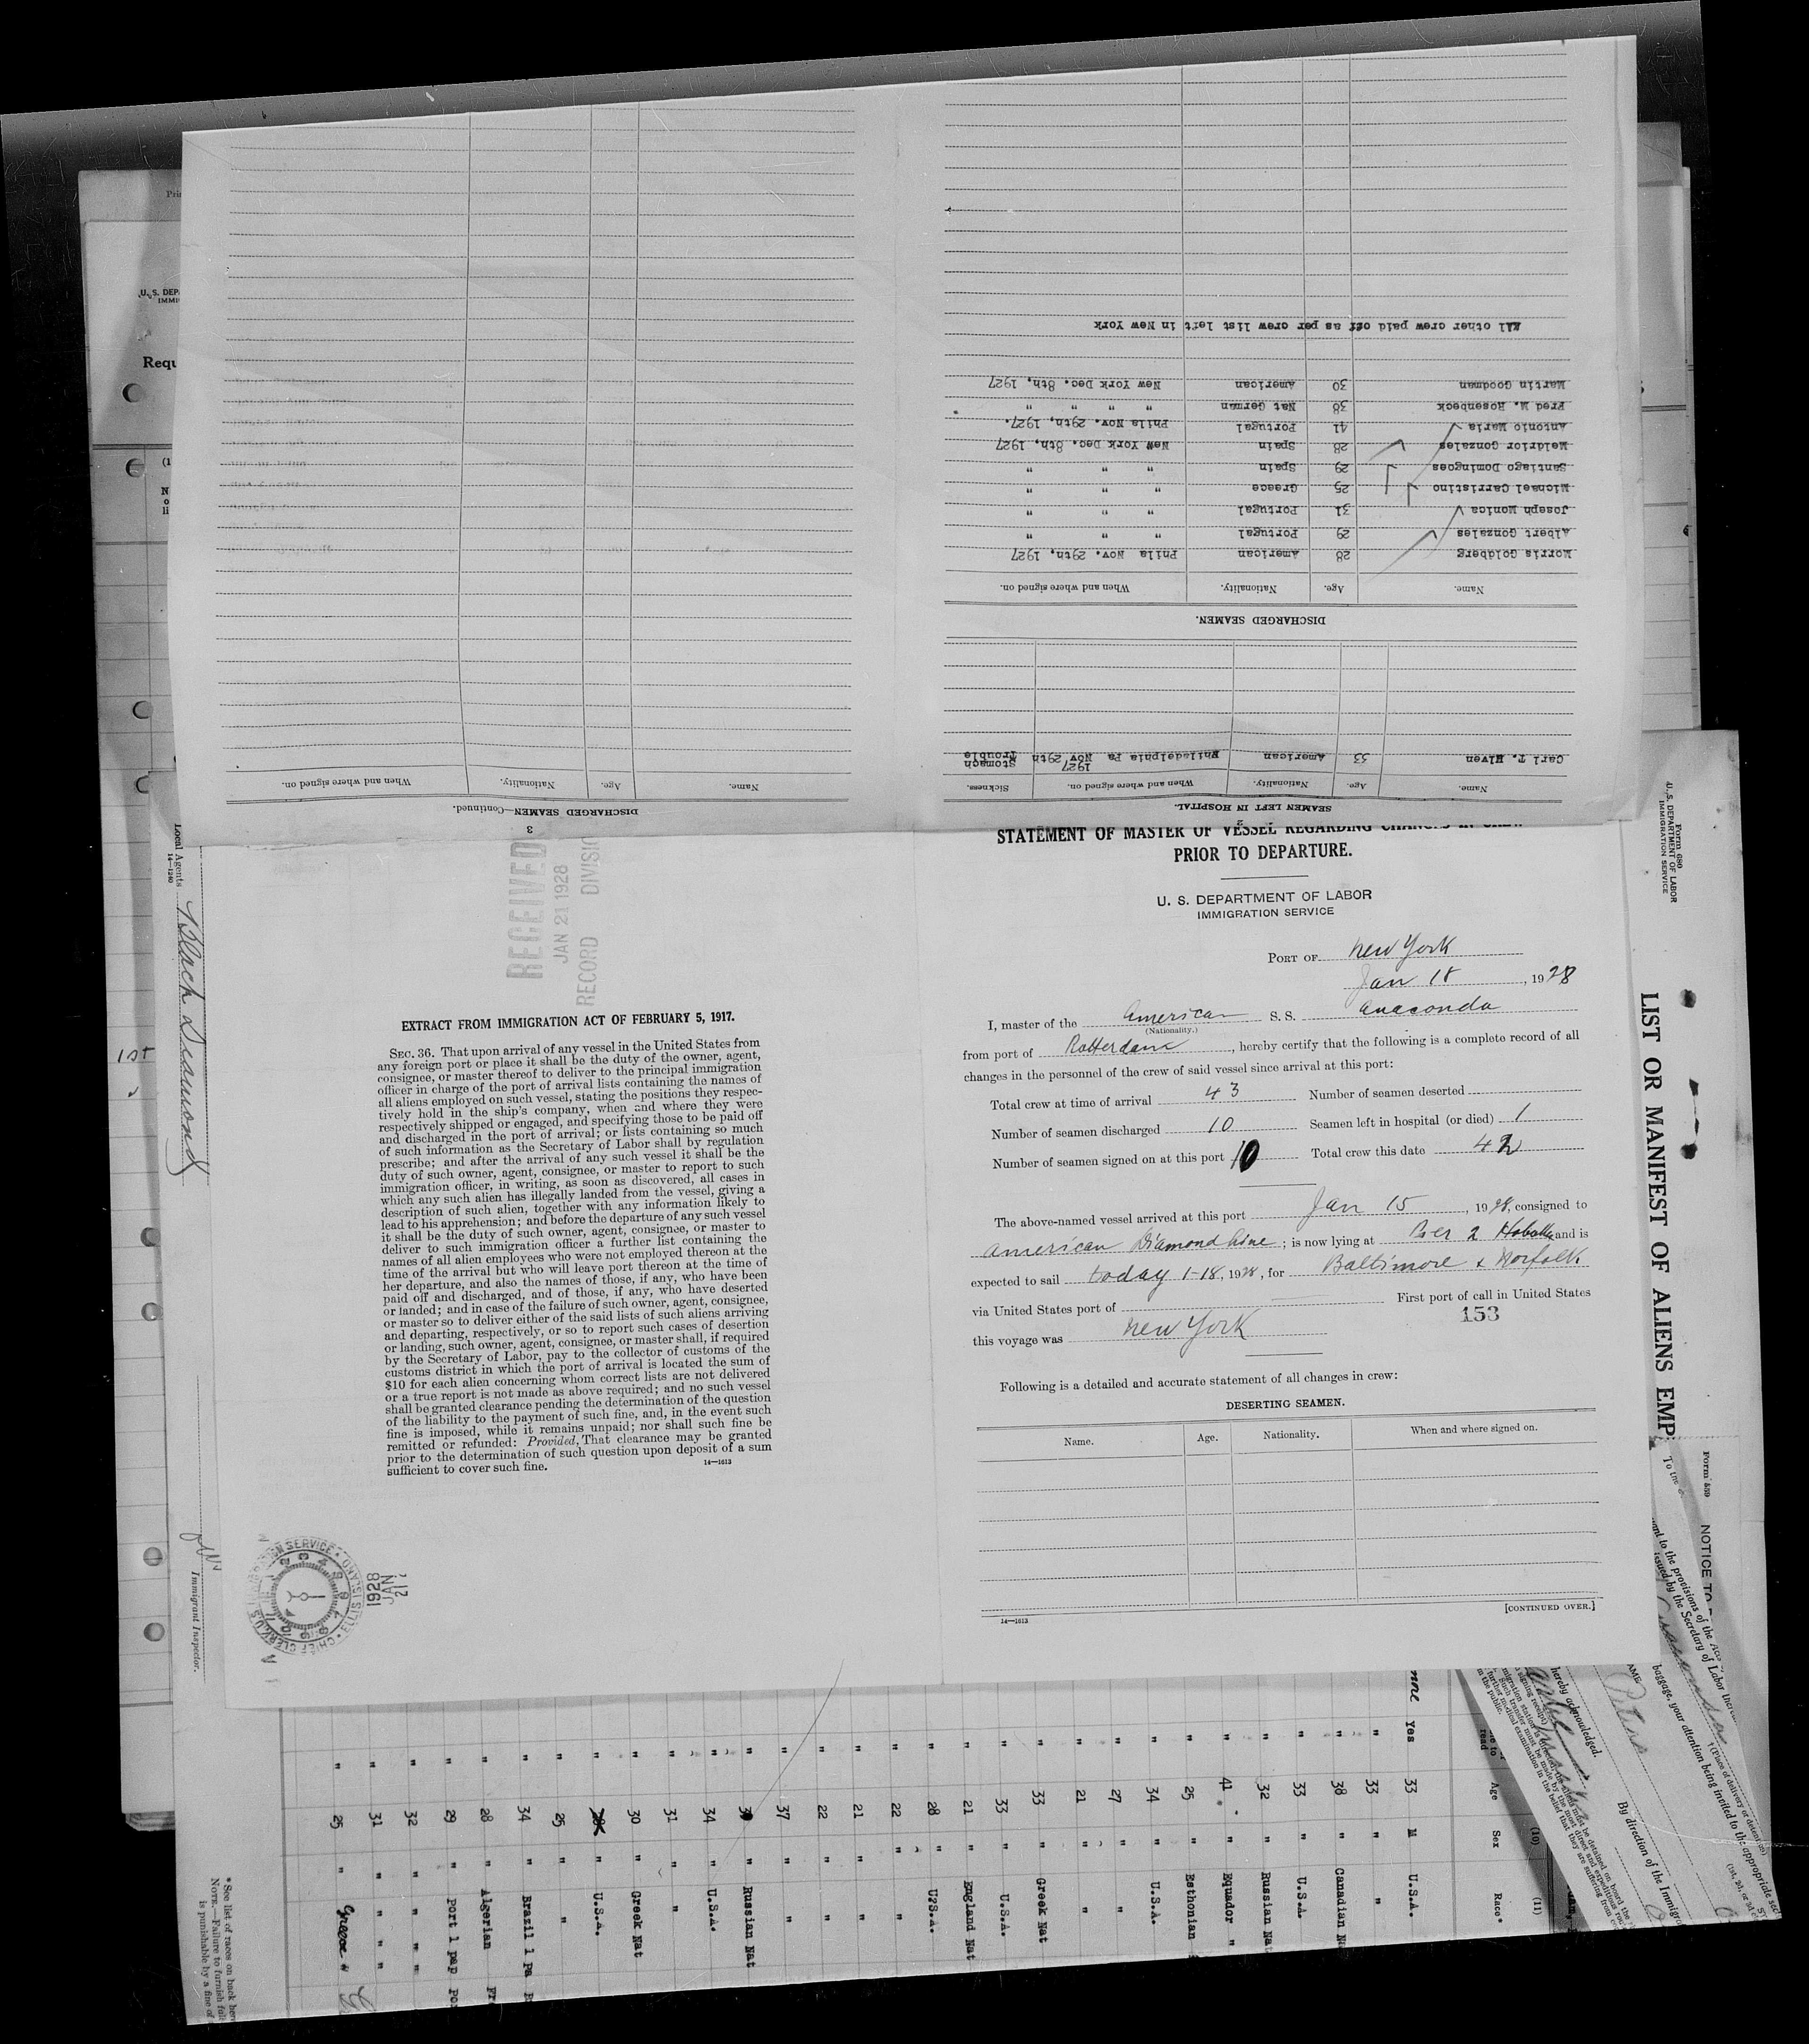 All other crew paid off as per crew list left in New York
Martin Goodman 30 American New York Dec. 8th, 1927
Fred M. Rosenbeck 38 Nat German " " " "
Antonio Maria 41 Portugal Phila Nov. 29th, 1927.
Melarior Gonzales 28 Spain New York Dec. 8th, 1927
Santiago Domingoes 29 Spain " " "
Michael Carristino 25 Greece " " "
Joseph Monica 31 Portugal " " "
Albert Gonzales 29 Portugal " " "
Morris Goldberg 28 American Phila Nov. 29th, 1927
Name. Age. Nationality. When and where signed on.
DISCHARGED SEAMEN.
Carl T. Elven 33 American Philadelphia Pa Nov 29th 1927 Stomach Trouble
Name. Age. Nationality. When and where signed on. Sickness.
SEAMEN LEFT IN HOSPITAL.
Name. Age. Nationality. When and where signed on.
DISCHARGED SEAMEN—Continued.
3
STATEMENT OF MASTER OF VESSEL REGARDING CHANGES IN CREW
PRIOR TO DEPARTURE.
U. S. DEPARTMENT OF LABOR
IMMIGRATION SERVICE
PORT OF New York
Jan 18, 1928
I, master of the American S. S. Anaconda
(Nationality.)
from port of Rotterdam, hereby certify that the following is a complete record of all
changes in the personnel of the crew of said vessel since arrival at this port:
Total crew at time of arrival 43 Number of seamen deserted
Number of seamen discharged 10 Seamen left in hospital (or died) 1
Number of seamen signed on at this port 10 Total crew this date 42
The above-named vessel arrived at this port Jan 15, 1928, consigned to
American Diamond Line; is now lying at Pier 2 Hoboken and is
expected to sail today 1-18, 1928, for Baltimore & Norfolk
via United States port of First port of call in United States
153
this voyage was New York
Following is a detailed and accurate statement of all changes in crew:
DESERTING SEAMEN.
Name. Age. Nationality. When and where signed on.
14—1613
[CONTINUED OVER.]
RECEIVED
JAN 21 1928
RECORD DIVISIO
EXTRACT FROM IMMIGRATION ACT OF FEBRUARY 5, 1917.
SEC. 36. That upon arrival of any vessel in the United States from
any foreign port or place it shall be the duty of the owner, agent,
consignee, or master thereof to deliver to the principal immigration
officer in charge of the port of arrival lists containing the names of
all aliens employed on such vessel, stating the positions they respec-
tively hold in the ship's company, when and where they were
respectively shipped or engaged, and specifying those to be paid off
and discharged in the port of arrival; or lists containing so much
of such information as the Secretary of Labor shall by regulation
prescribe; and after the arrival of any such vessel it shall be the
duty of such owner, agent, consignee, or master to report to such
immigration officer, in writing, as soon as discovered, all cases in
which any such alien has illegally landed from the vessel, giving a
description of such alien, together with any information likely to
lead to his apprehension; and before the departure of any such vessel
it shall be the duty of such owner, agent, consignee, or master to
deliver to such immigration officer a further list containing the
names of all alien employees who were not employed thereon at the
time of the arrival but who will leave port thereon at the time of
her departure, and also the names of those, if any, who have been
paid off and discharged, and of those, if any, who have deserted
or landed; and in case of the failure of such owner, agent, consignee,
or master so to deliver either of the said lists of such aliens arriving
and departing, respectively, or so to report such cases of desertion
or landing, such owner, agent, consignee, or master shall, if required
by the Secretary of Labor, pay to the collector of customs of the
customs district in which the port of arrival is located the sum of
$10 for each alien concerning whom correct lists are not delivered
or a true report is not made as above required; and no such vessel
shall be granted clearance pending the determination of the question
of the liability to the payment of such fine, and, in the event such
fine is imposed, while it remains unpaid; nor shall such fine be
remitted or refunded: Provided, That clearance may be granted
prior to the determination of such question upon deposit of a sum
sufficient to cover such fine.
14—1613
1928
JAN
21
U. S. DEP
IMMI
Requ
Local Agents Black Diamond
14—1240
1st
Immigrant Inspector.
Form 680
U. S. DEPARTMENT OF LABOR
IMMIGRATION SERVICE
LIST OR MANIFEST OF ALIENS EMP
Form 559
NOTICE TO
By direction of the Immigr
hereby acknowledged.
Age Sex Race*
(10) (11)
Yes 33 M U.S.A.
" 33 " "
" 38 " Canadian N
" 33 " U.S.A.
" 32 " Russian Na
" 41 " Equador "
" 25 " Esthonian
" 34 " U.S.A.
" 27 " "
" 21 " "
" 33 " Greek Nat
" 33 " U.S.A.
" 21 " England Nat
" 28 " U?S.A.
" 22 " "
" 21 " "
" 22 " "
" 37 " "
" " Russian Nat
" 34 " U.S.A.
" 31 " "
" 30 " Greek Nat
" " U.S.A.
" 25 " "
" 34 " Brazil 1 Pa
" 28 " Algerian Fr
" 29 " Port 1 pap Po
" 32 " "
" 31 " "
" 25 " Greece "
* See list of races on back her
NOTE.—Failure to furnish full
is punishable by a fine of